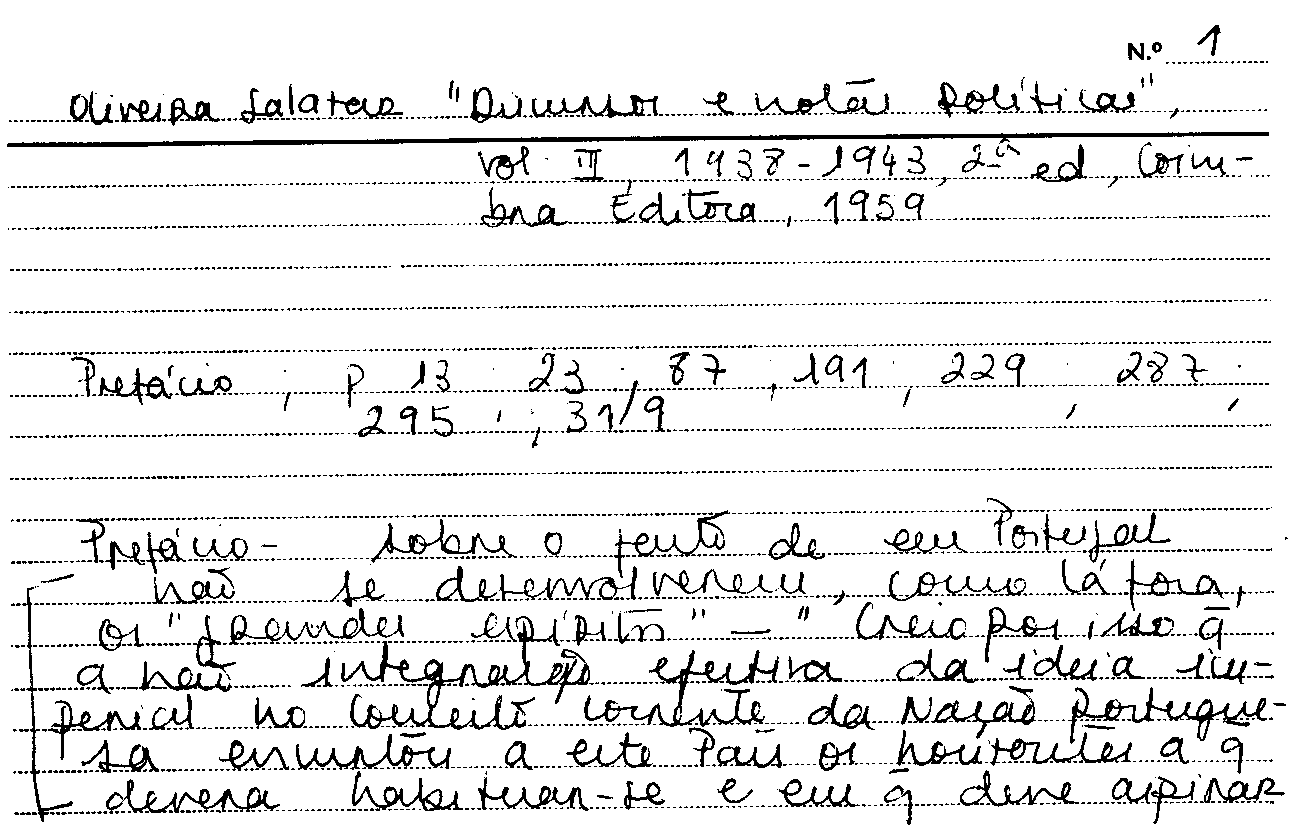 N.º 1
Oliveira Salazar "Discursos e notas políticas",
vol. III, 1938-1943, 2ª ed, Coim-
bra Editora, 1959
Prefácio, p 13, 23, 87, 191, 229, 287,
295, ; 31/9
Prefácio - sobre o de em Portugal
não se desenvolverem, como lá fora,
os "grandes espíritos" — "Creio por isso q̄
a não integração efectiva da ideia im-
perial no conceito corrente da Nação portugue-
sa encurtou a este País os horizontes a q̄
devera habituar-se e em q̄ deve aspirar